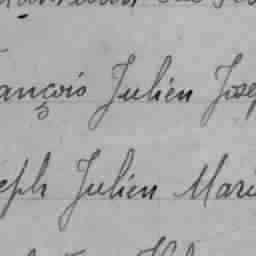 ançois Julien Jose
eph Julien Mari